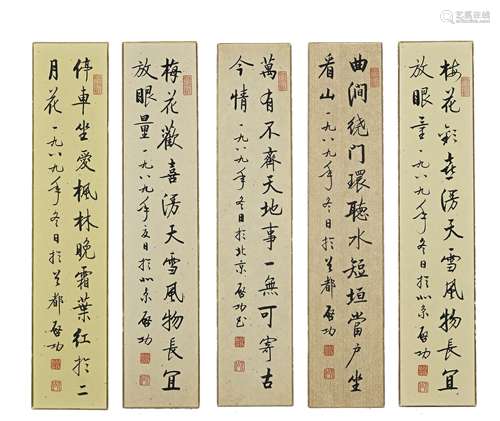 梅花欢喜漫天雪風物長宜
放眼量一九八九年冬日於北京啓功
曲澗绕门環聽水短垣當户坐
看山一九八九年冬日於首都啓功
萬有不齊天地事一無可寄古
今情一九八九年冬日於北京啓功书
梅花歡喜漫天雪風物長宜
放眼量一九八九年夏日於北京啓功
停車坐愛楓林晚霜葉紅於二
月花一九八九年冬日於首都啓功
艺狐在线